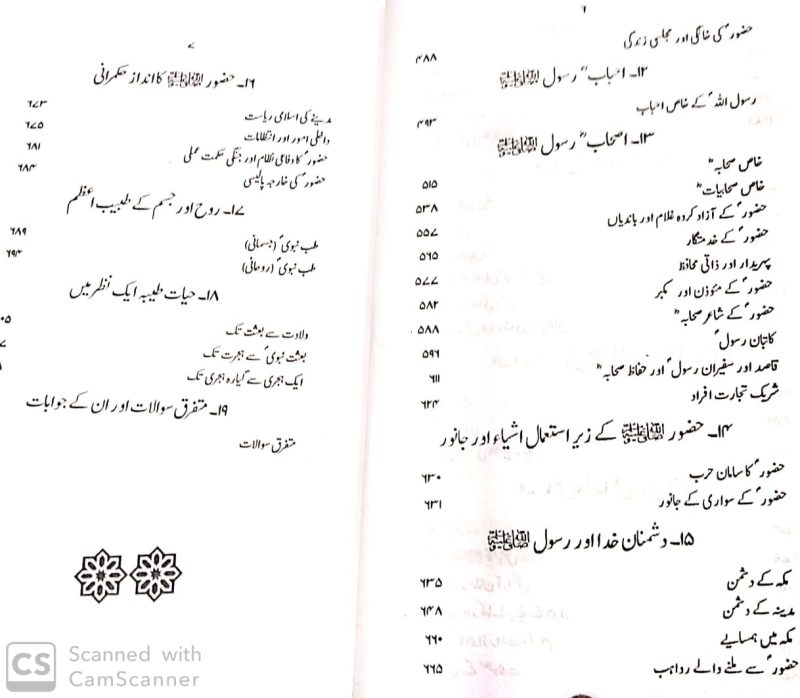 ۶
حضورؐ کی خانگی اور مجلسی زندگی ۴۸۸
۱۲۔ احبابؓ رسول ﷺ
رسول اللہؐ کے خاص احباب ۴۹۳
۱۳۔ اصحابؓ رسول ﷺ
خاص صحابہؓ ۵۱۵
خاص صحابیاتؓ ۵۳۸
حضورؐ کے آزاد کردہ غلام اور باندیاں ۵۵۷
حضورؐ کے خدمتگار ۵۶۵
پہریدار اور ذاتی محافظ ۵۷۷
حضورؐ کے مئوذن اور مکبر ۵۸۲
حضورؐ کے شاعر صحابہؓ ۵۸۸
کاتبان رسولؐ ۵۹۶
قاصد اور سفیران رسولؐ اور حفاظ صحابہؓ ۶۱۱
شریک تجارت افراد ۶۲۴
۱۴۔ حضور ﷺ کے زیر استعمال اشیاء اور جانور
حضورؐ کا سامان حرب ۶۳۰
حضورؐ کے سواری کے جانور ۶۳۱
۱۵۔ دشمنان خدا اور رسول ﷺ
مکہ کے دشمن ۶۳۵
مدینہ کے دشمن ۶۴۸
مکہ میں ہمسایے ۶۶۰
حضورؐ سے ملنے والے راہب ۶۶۵
۷
۱۶۔ حضور ﷺ کا انداز حکمرانی
مدینے کی اسلامی ریاست ۶۷۳
داخلی امور اور انتظامات ۶۷۵
حضورؐ کا دفاعی نظام اور جنگی حکمت عملی ۶۸۱
حضورؐ کی خارجہ پالیسی ۶۸۴
۱۷۔ روح اور جسم کے طبیب اعظم
طب نبویؐ (جسمانی) ۶۸۹
طب نبویؐ (روحانی) ۶۹۴
۱۸۔ حیات طیبہ ایک نظر میں
ولادت سے بعثت تک
بعثت نبویؐ سے ہجرت تک
ایک ہجری سے گیارہ ہجری تک
۱۹۔ متفرق سوالات اور ان کے جوابات
متفرق سوالات
CS Scanned with
CamScanner